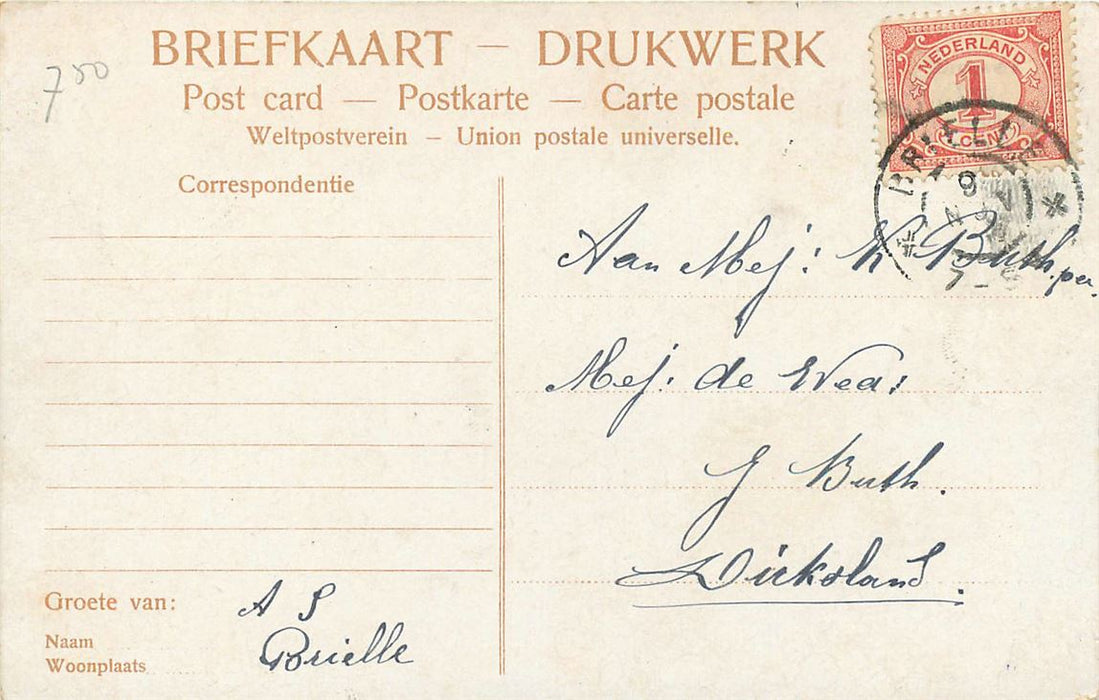 BRIEFKAART — DRUKWERK
Post card — Postkarte — Carte postale
Weltpostverein — Union postale universelle.
750
NEDERLAND
1
CENT
BRIELLE
9
Correspondentie
Aan Mej: K Buth.
per.
Mej: de Wed:
J Buth.
Dirksland.
Groete van: A S
Naam
Woonplaats Brielle